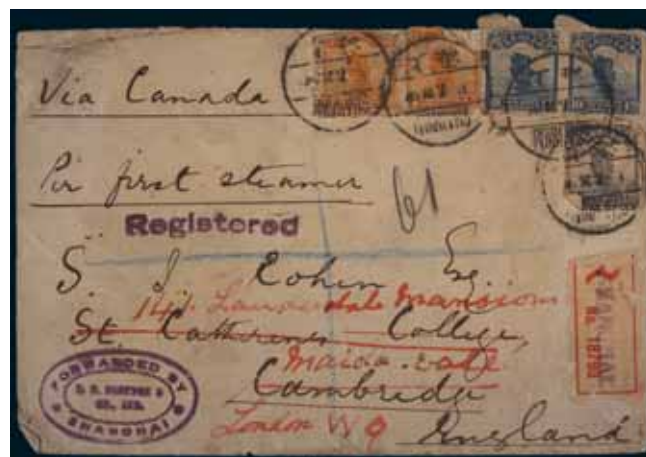 Via Canada
Per first steamer
61
Registered
S. J. Cohen Esq.
141 Lauderdale Mansions
St. Catherines College,
Maida-vale
Cambridge
London W9
England
FORWARDED BY
CO., LTD.
SHANGHAI
SHANGHAI